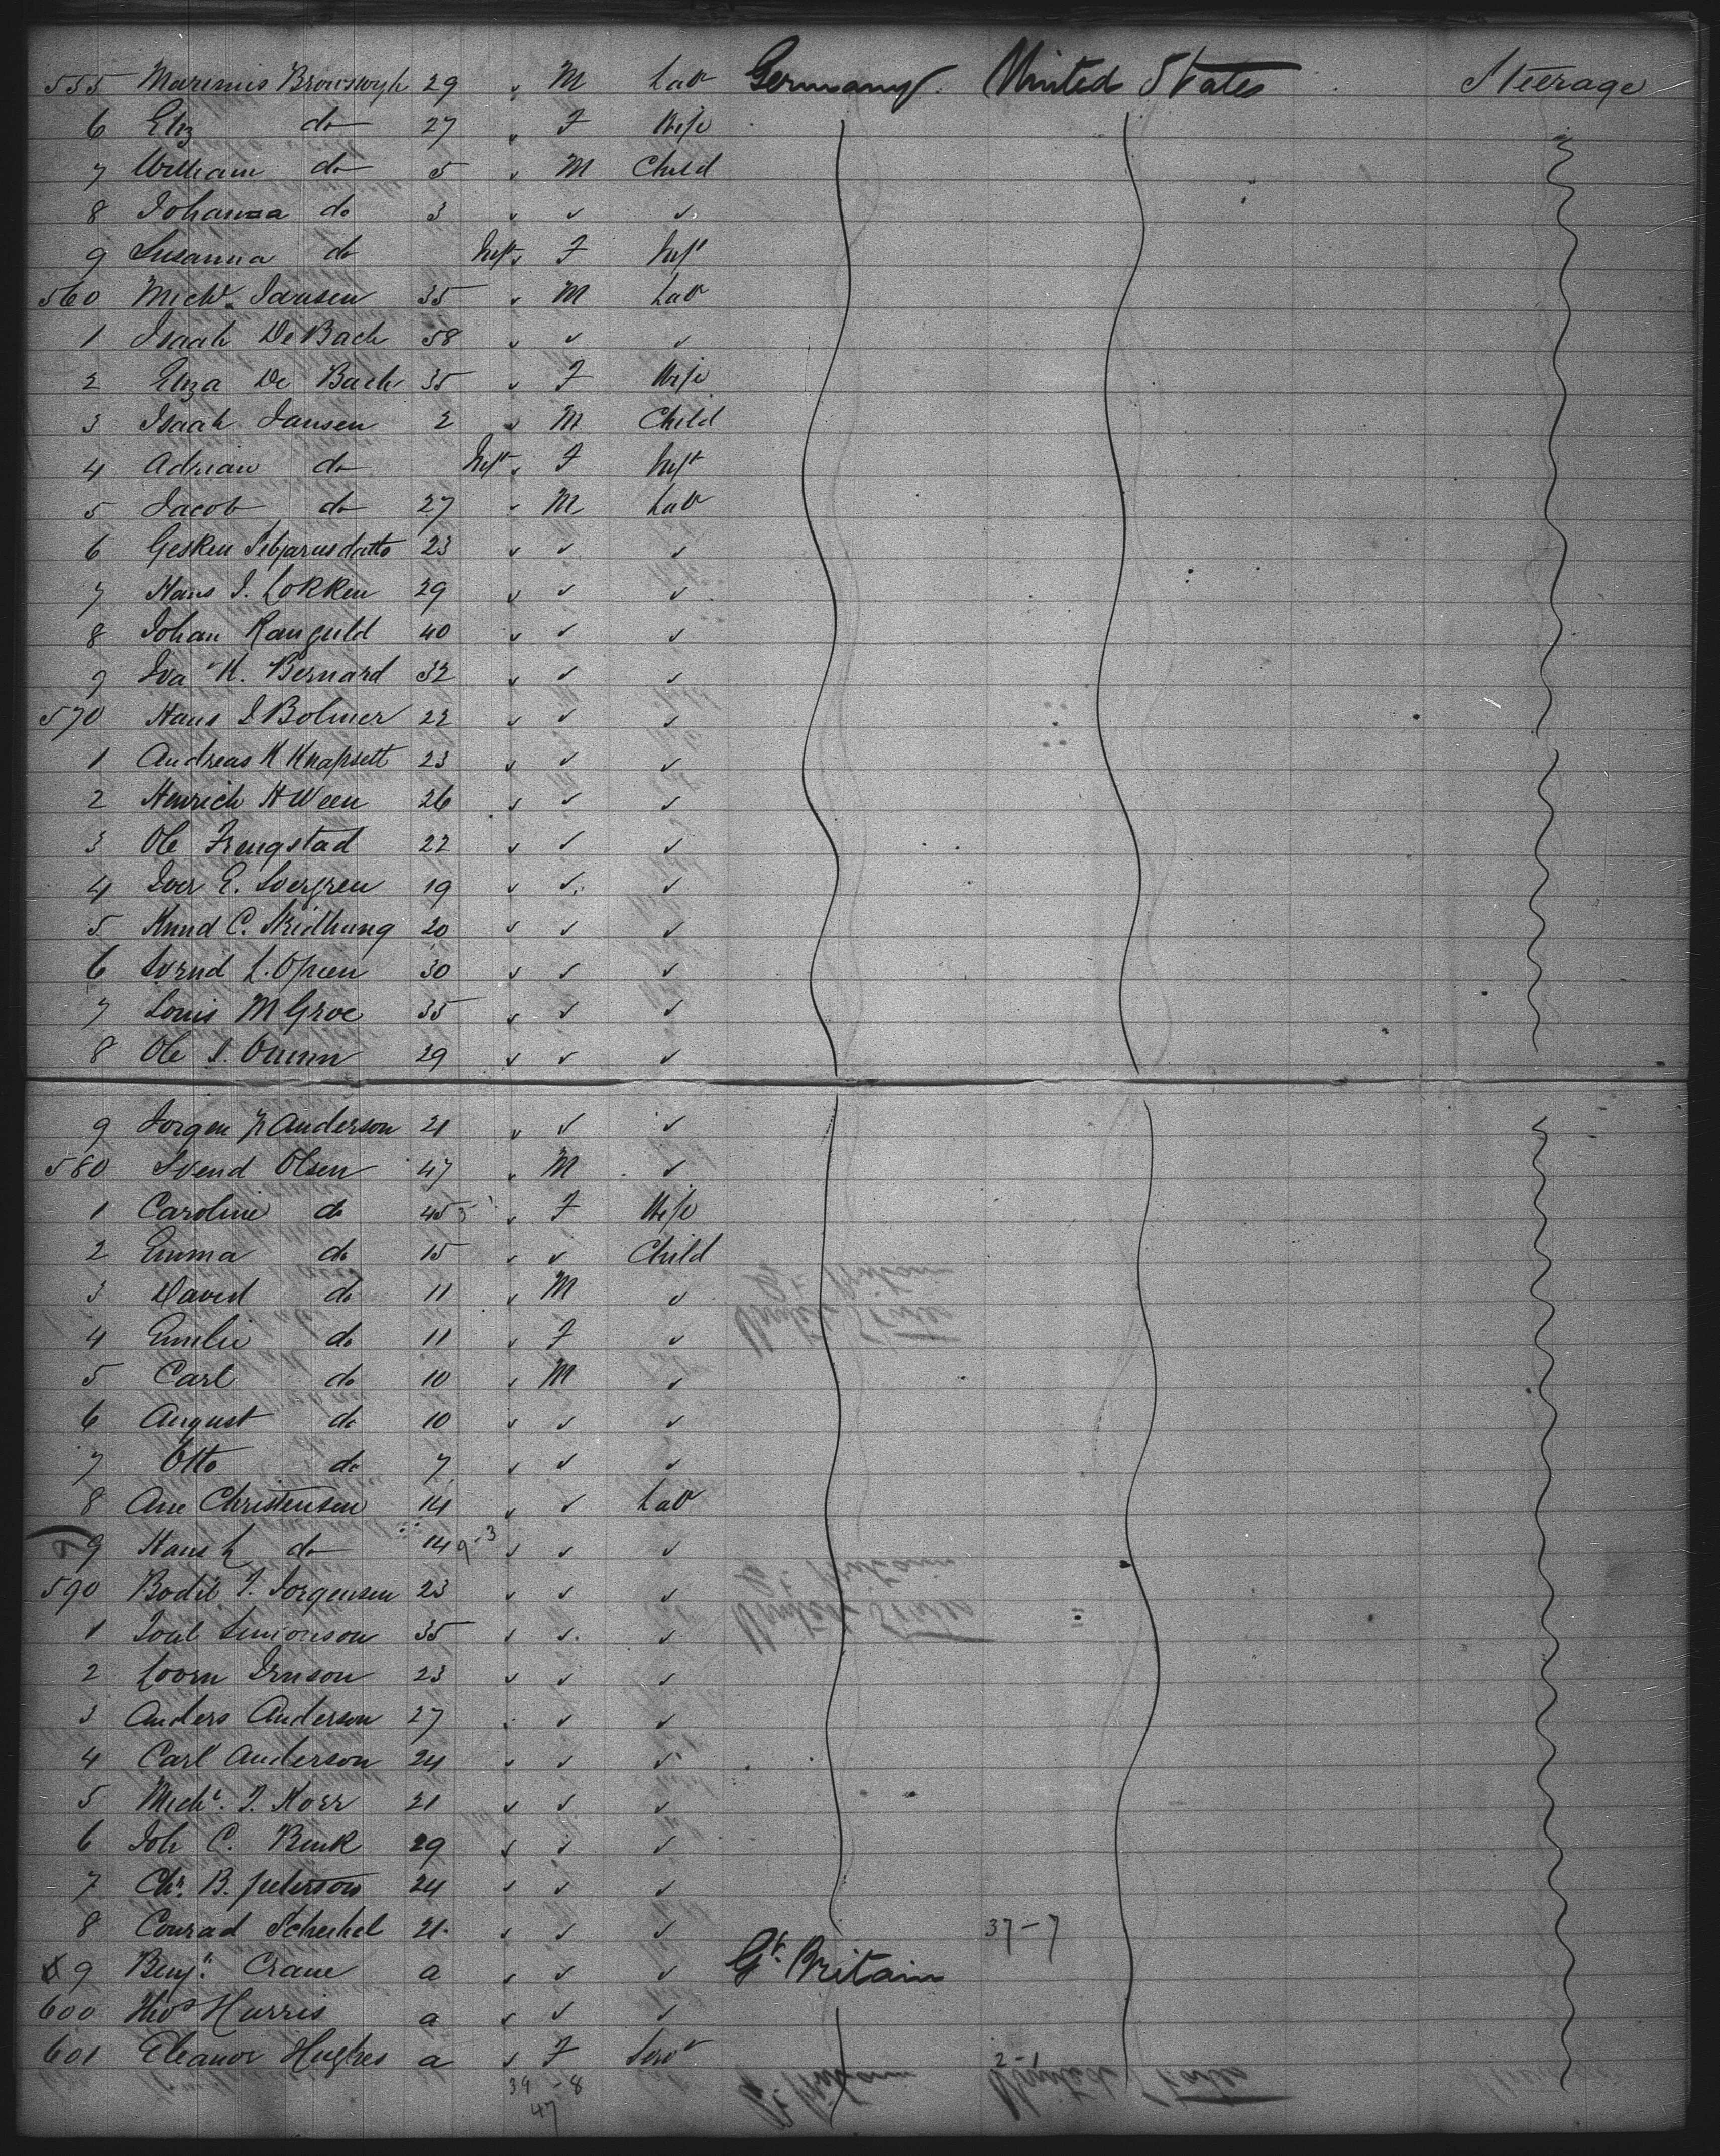 555 Marinus Browswyk 29 " M Lab Germany United States Steerage
6 Eliz do 27 " F Wife
7 William do 5 " M Child
8 Johanna do 3 " " "
9 Susanna do Inft " F Inft
560 Michl. Jansen 35 " M Lab
1 Isaak De Bach 58 " " "
2 Eliza De Bach 35 " F Wife
3 Isaak Jansen 2 " M Child
4 Adrian do Inft " F Inft
5 Jacob do 27 " M Lab
6 Gesken 23 " " "
7 Hans I. Lokken 29 " " "
8 Johan Ranguld 40 " " "
9 Iva K. Bernard 32 " " "
570 Hans I Bolmer 22 " " "
1 Andreas K Knapsett 23 " " "
2 Henrich H Ween 26 " " "
3 Ole Frengstad 22 " " "
4 Iver E. 19 " " "
5 Knud C. 20 " " "
6 Svend L. 30 " " "
7 Louis M Groe 35 " " "
8 Ole 29 " " "
9 Jorgen Anderson 21 " " "
580 Svend Olsen 47 " M "
1 Caroline do 45 " F Wife
2 Emma do 15 " " Child
3 David do 11 " M "
4 Emilie do 11 " F "
5 Carl do 10 " M "
6 August do 10 " " "
7 Otto do 7 " " "
8 Ane Christensen 14 " " Lab
9 Hans L do 14 9-3 " " "
590 Bodil I. Jorgensen 23 " " "
1 Simonson 35 " " "
2 23 " " "
3 Anders Anderson 27 " " "
4 Carl Anderson 24 " " "
5 Michl. I. 21 " " "
6 Joh C. Bink 29 " " "
7 Chr. B. Peterson 24 " " "
8 Conrad 21 " " " 37-7
9 Benjn. Crane a " " " Gt. Britain
600 Thos Harris a " " "
601 Eleanor Hughes a " F Servt 2-1
39 - 8
47